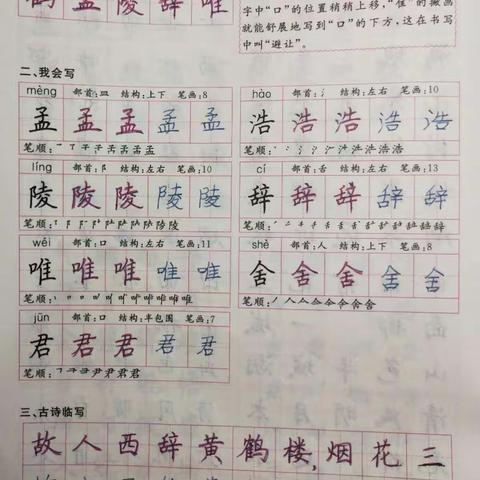 鹤 孟 陵 辞 唯
字中“口”的位置稍稍上移,“隹”的撇画
就能舒展地写到“口”的下方,这在书写
中叫“避让”。
二、我会写
mèng 部首:皿 结构:上下 笔画:8
孟 孟 孟 孟 孟
笔顺:
hào 部首:氵 结构:左右 笔画:10
浩 浩 浩 浩 浩
笔顺:
líng 部首:阝 结构:左右 笔画:10
陵 陵 陵 陵 陵
笔顺:
cí 部首:舌 结构:左右 笔画:13
辞 辞 辞 辞 辞
笔顺:
wéi 部首:口 结构:左右 笔画:11
唯 唯 唯 唯 唯
笔顺:
shě 部首:人 结构:上下 笔画:8
舍 舍 舍 舍 舍
笔顺:
jūn 部首:口 结构:半包围 笔画:7
君 君 君 君 君
笔顺:
三、古诗临写
故 人 西 辞 黄 鹤 楼, 烟 花 三